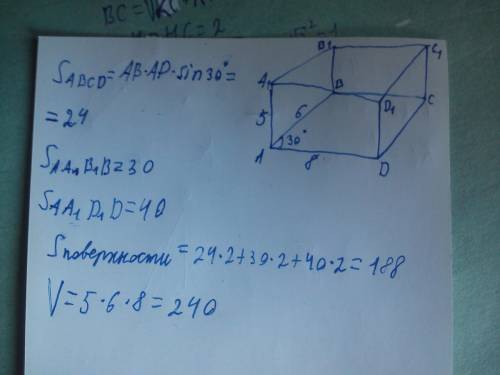 BC=
HC=2
S ABCD = AB·AD·sin30°=
=24
S AA₁B₁B=30
S AA₁D₁D=40
Sповерхности=24·2+30·2+40·2=188
V=5·6·8=240
B₁
C₁
A₁
B
D₁
C
5
6
30°
A
8
D